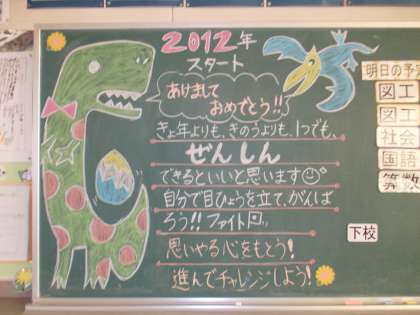 2012年
スタート
あけまして
おめでとう!!
きょ年よりも、きのうよりも、1つでも、
ぜんしん
できるといいと思います
自分で目ひょうを立て、がんば
ろう!! ファイト
思いやる心をもとう!
進んでチャレンジしよう!
明日の予定
図工
図工
社会
国語
算数
下校